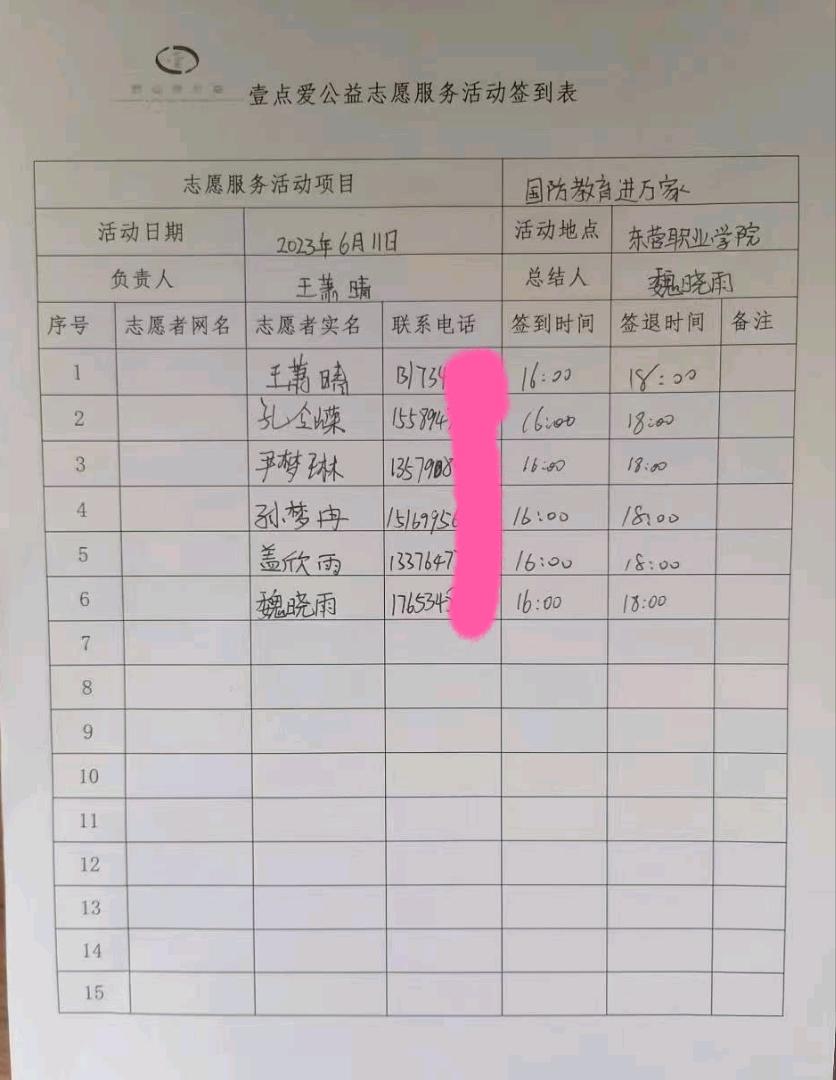 壹点爱公益志愿服务活动签到表
志愿服务活动项目 国防教育进万家
活动日期 2023年6月11日 活动地点 东营职业学院
负责人 王萧晴 总结人 魏晓雨
序号 志愿者网名 志愿者实名 联系电话 签到时间 签退时间 备注
1 王萧晴 131734 16:00 18:00
2 孔令嵘 155894 16:00 18:00
3 尹梦琳 1357908 16:00 18:00
4 孙梦冉 1516995 16:00 18:00
5 盖欣雨 1337647 16:00 18:00
6 魏晓雨 1765345 16:00 18:00
7
8
9
10
11
12
13
14
15